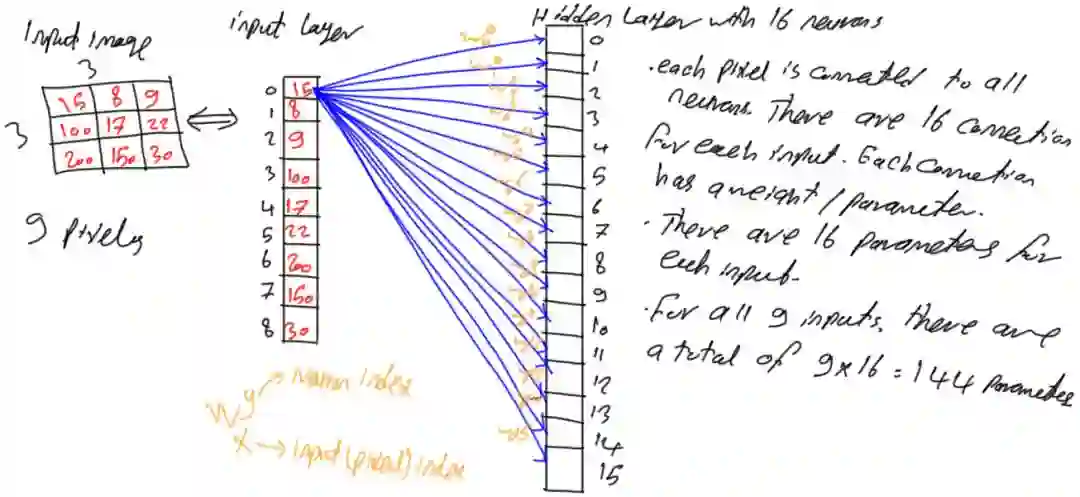 Input image
3
3
15 8 9
100 17 22
200 150 30
9 pixels
input Layer
0 15
1 8
2 9
3 100
4 17
5 22
6 200
7 150
8 30
W y → neuron index
x → input (pixel) index
Hidden Layer with 16 neurons
0
1
2
3
4
5
6
7
8
9
10
11
12
13
14
15
• each pixel is connected to all
neurons. There are 16 connection
for each input. Each connection
has a weight / parameter.
• There are 16 parameters for
each input.
• For all 9 inputs, there are
a total of 9x16 = 144 parameters